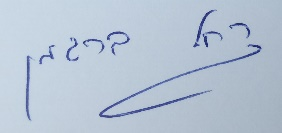 רחל ברגמן